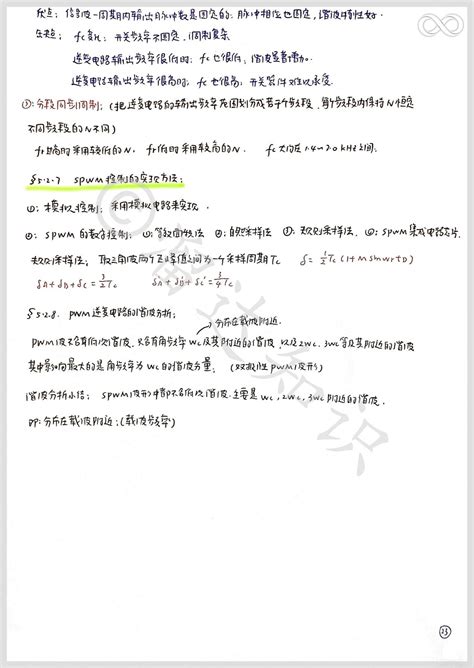 优点：信号波一周期内输出脉冲数是固定的；脉冲相位也固定，谐波特性好.
缺点：fc变化：开关频率不固定，调制复杂
逆变电路输出频率很低时：fc也很低，谐波显著增加.
逆变电路输出频率很高时：fc也很高：开关器件难以承受.
③：分段同步调制：（把逆变电路的输出频率范围划分成若干个频段，每个频段内保持N恒定
不同频段的N不同）
fr高时采用较低的N. fr低时采用较高的N. fc大约在1.4~2.0kHz之间.
§5.2.7 SPWM控制的实现方法：
①：模拟控制：采用模拟电路来实现.
②：SPWM的数字控制：①等效面积法 ②：自然采样法 ③：规则采样法. ④：SPWM集成电路芯片.
规则采样法：取三角波两个正峰值之间为一个采样周期Tc δ=½Tc(1+MsinωrtD)
δA+δB+δC=3/2Tc δ'A+δ'B+δ'C=3/4Tc
§5.2.8. PWM逆变电路的谐波分析；
分布在载波附近.
PWM波只含有低次谐波，只含有角频率wc及其附近的谐波. 以及2wc. 3wc等及其附近的谐波
其中影响最大的是角频率为wc的谐波分量. （双极性PWM波形）
谐波分析小结：SPWM波形中含不含低次谐波. 主要是wc，2wc，3wc附近的谐波.
即：分布在载波附近：（载波频率）
©
知识
23